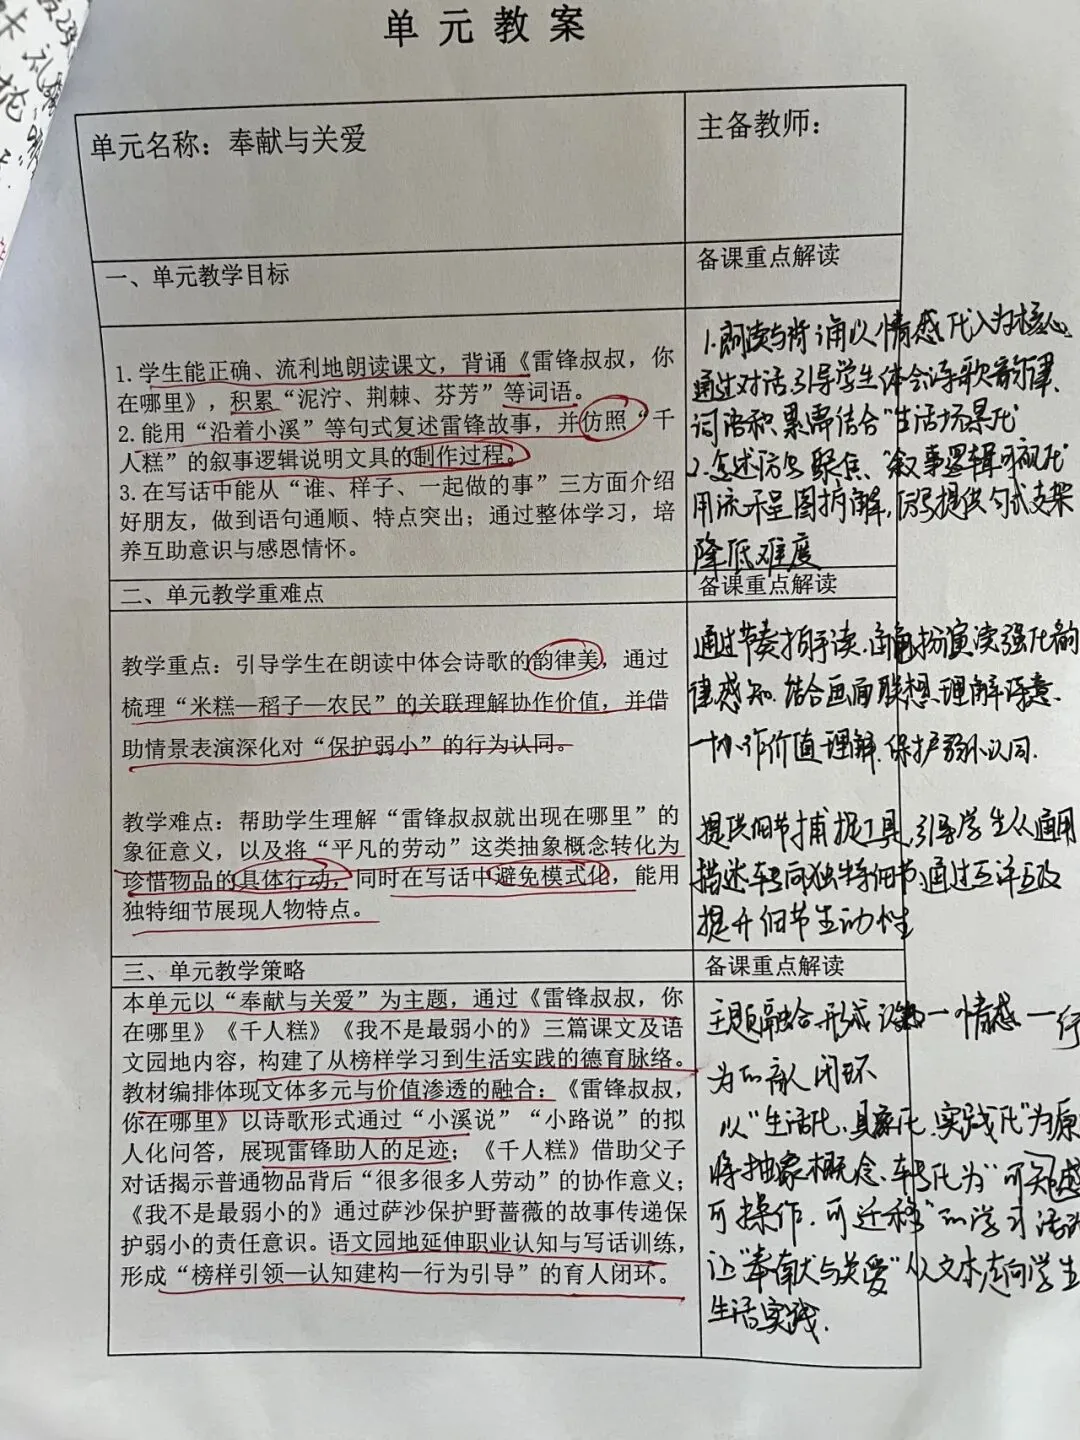 单元教案
单元名称：奉献与关爱
主备教师：
一、单元教学目标
备课重点解读
1.学生能正确、流利地朗读课文，背诵《雷锋叔叔，你
在哪里》，积累“泥泞、荆棘、芬芳”等词语。
2.能用“沿着小溪”等句式复述雷锋故事，并仿照“千
人糕”的叙事逻辑说明文具的制作过程。
3.在写话中能从“谁、样子、一起做的事”三方面介绍
好朋友，做到语句通顺、特点突出；通过整体学习，培
养互助意识与感恩情怀。
1.朗读与背诵以情感代入为核心
通过对话引导学生体会诗歌韵律，
词语积累需结合“生活场景化”
2.复述仿写聚焦“叙事逻辑可视化”
用流程图拆解，仿写提供句式支架
降低难度
二、单元教学重难点
备课重点解读
教学重点：引导学生在朗读中体会诗歌的韵律美，通过
梳理“米糕—稻子—农民”的关联理解协作价值，并借
助情景表演深化对“保护弱小”的行为认同。
通过节奏拍手读、角色扮演读强化韵
律感知，结合画面联想理解诗意。
一协作价值理解、保护弱小认同.
教学难点：帮助学生理解“雷锋叔叔就出现在哪里”的
象征意义，以及将“平凡的劳动”这类抽象概念转化为
珍惜物品的具体行动，同时在写话中避免模式化，能用
独特细节展现人物特点。
提供细节捕捉工具，引导学生从通用
描述转向独特细节，通过互评互改
提升细节生动性
三、单元教学策略
备课重点解读
本单元以“奉献与关爱”为主题，通过《雷锋叔叔，你
在哪里》《千人糕》《我不是最弱小的》三篇课文及语
文园地内容，构建了从榜样学习到生活实践的德育脉络。
教材编排体现文体多元与价值渗透的融合：《雷锋叔叔，
你在哪里》以诗歌形式通过“小溪说”“小路说”的拟
人化问答，展现雷锋助人的足迹；《千人糕》借助父子
对话揭示普通物品背后“很多很多人劳动”的协作意义；
《我不是最弱小的》通过萨沙保护野蔷薇的故事传递保
护弱小的责任意识。语文园地延伸职业认知与写话训练，
形成“榜样引领—认知建构—行为引导”的育人闭环。
主题融合形成认知一情感一行
为的育人闭环
以“生活化、具象化、实践化”为原
将抽象概念、转化为“可知感
可操作、可迁移”的学习活动
让“奉献与关爱”从文本走向学生
生活实践.